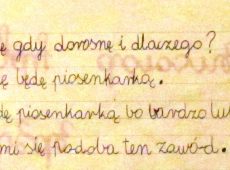 ę gdy dorosnę i dlaczego?
ę będę piosenkarką.
dę piosenkarką bo bardzo lu
mi się podoba ten zawód.